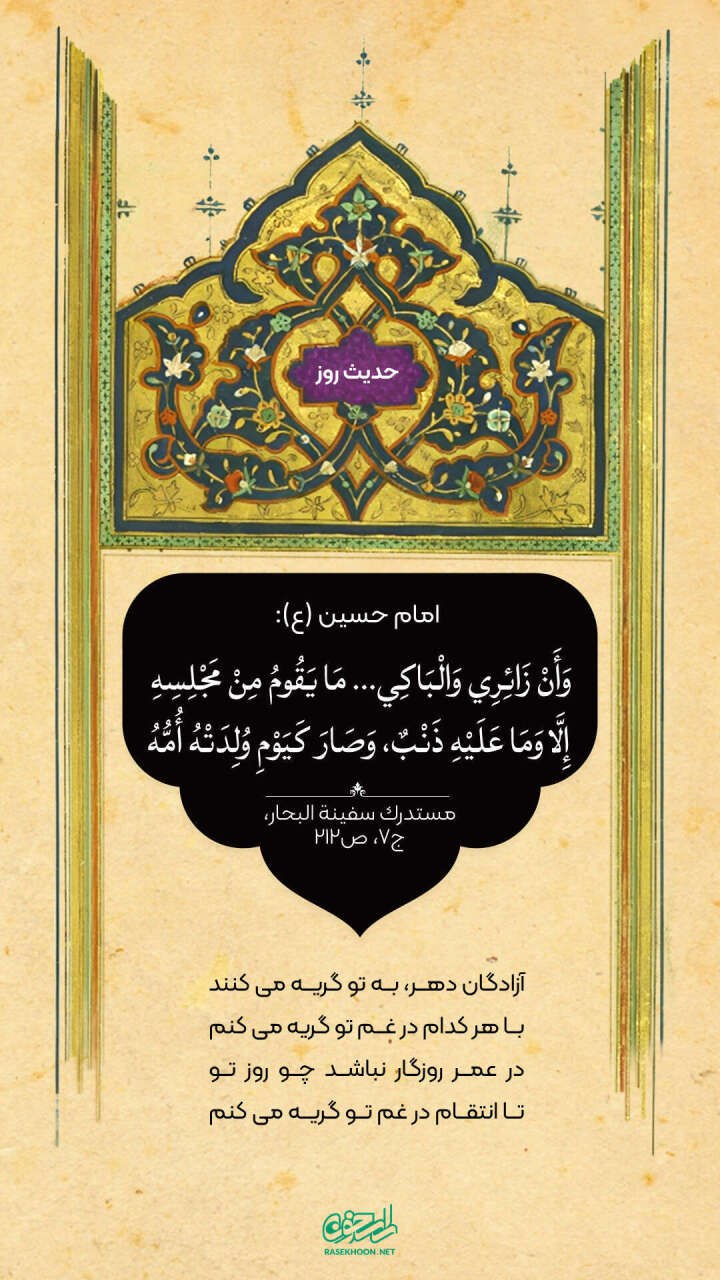 حدیث روز
امام حسین (ع):
وَأَنْ زَائِرِي وَالْبَاكِي... مَا يَقُومُ مِنْ مَجْلِسِهِ
إِلَّا وَمَا عَلَيْهِ ذَنْبٌ، وَصَارَ كَيَوْمِ وُلِدَتْهُ أُمُّهُ
مستدرك سفينة البحار،
ج۷، ص۲۱۲
آزادگان دهـر، بـه تو گریـه می کنند
بـا هر کدام در غـم تو گریه می کنم
در عمـر روزگار نباشـد چـو روز تـو
تـا انتقـام در غم تـو گریـه می کنم
راسخون
RASEKHOON.NET